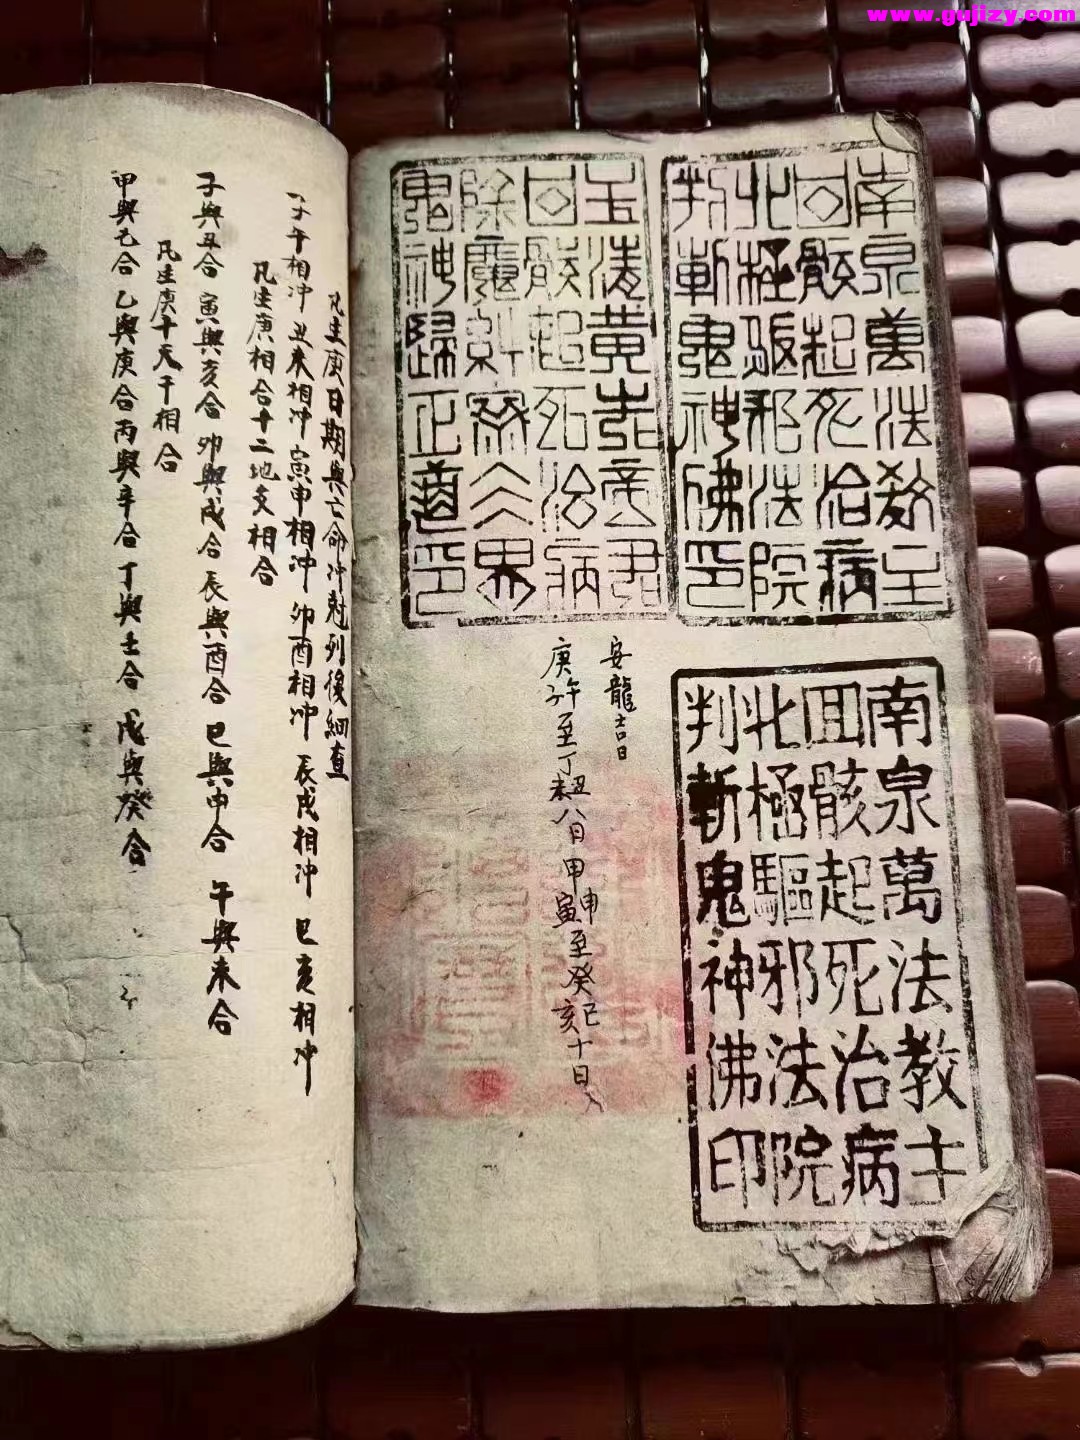 www.gujizy.com
南泉萬法教主
回骸起死治病
北極驅邪法院
判斬鬼神佛印
玉清黄老帝君
回骸起死治病
除魔糾察界
鬼神歸正道印
南泉萬法教主
回骸起死治病
北極驅邪法院
判斬鬼神佛印
安龍吉日
庚子午至丁丑未八日甲寅申至癸巳亥十日
凡生庚日期與亡命冲尅列後細查
子午相冲 丑未相冲 寅申相冲 卯酉相冲 辰戌相冲 巳亥相冲
凡生庚相合十二地支相合
子與丑合 寅與亥合 卯與戌合 辰與酉合 巳與申合 午與未合
凡生庚十天干相合
甲與己合 乙與庚合 丙與辛合 丁與壬合 戊與癸合